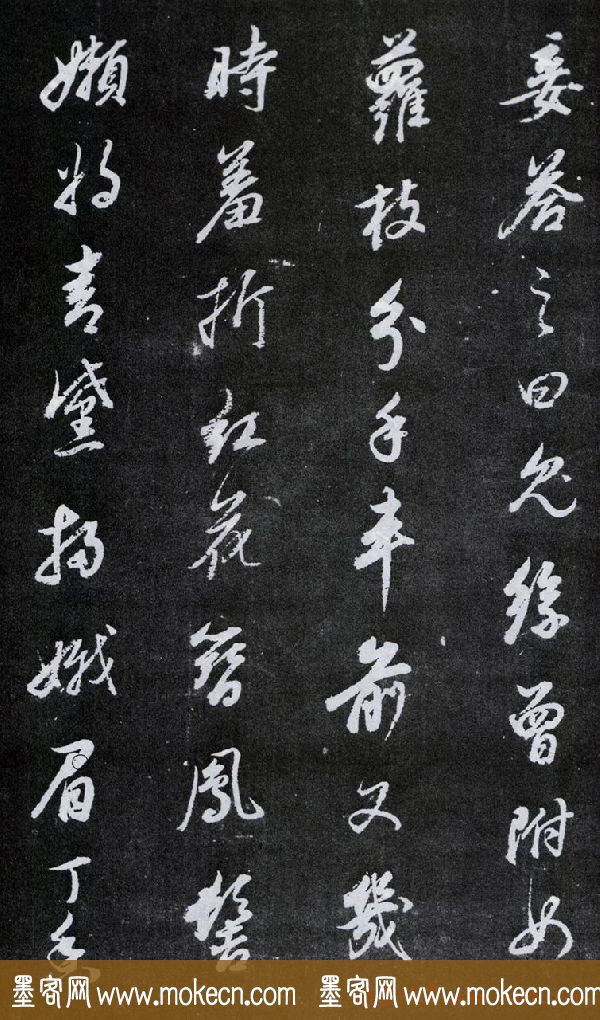 妾答之曰兔絲曾附女
蘿枝分手車前又幾
時羞折紅花簪鳳髻
嬾將青黛掃娥眉丁香
墨客网 www.mokecn.com 墨客网 www.mokecn.com